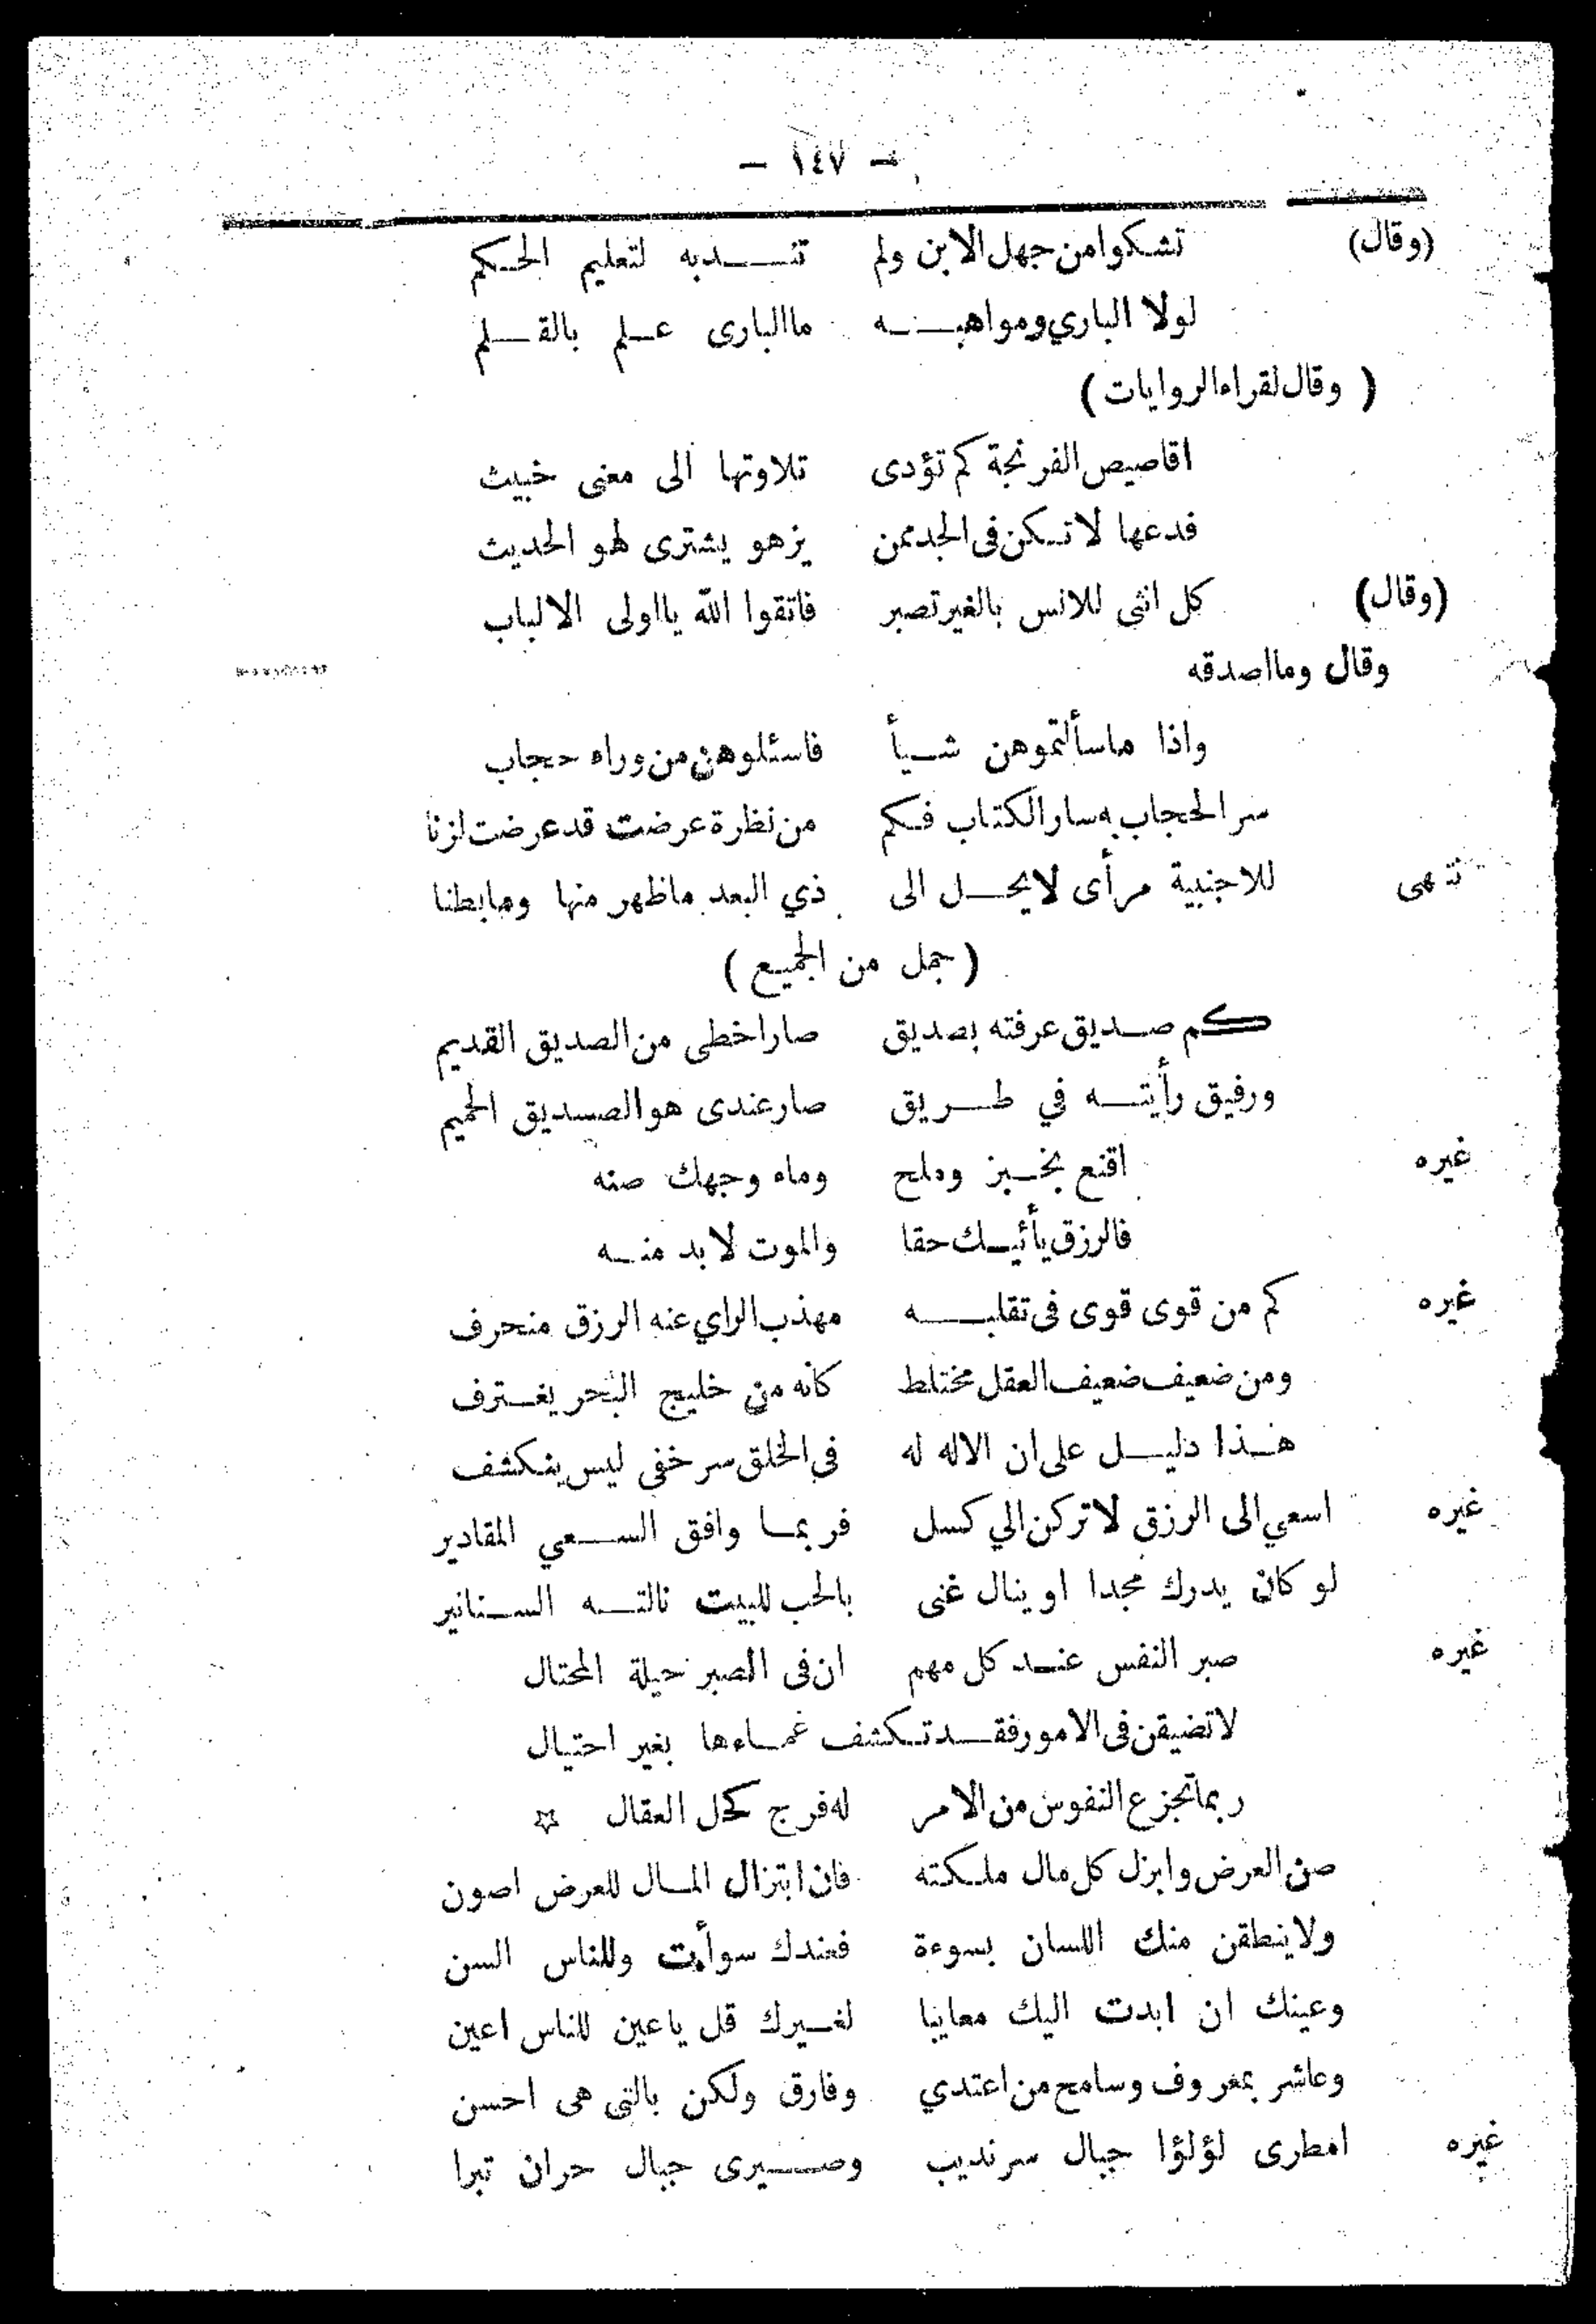 — ١٤٧ —
(وقال) تشكوا من جهل الابن ولم تنـدبه لتعليم الحكم
لولا الباري ومواهبـه ماالبارى علم بالقلم
( وقال لقراء الروايات )
اقاصيص الفرنجة كم تؤدى تلاوتها الى معنى خبيث
فدعها لا تكن فى الجد ممن يزهو يشترى لهو الحديث
(وقال) كل انثى للانس بالغير تصبر فاتقوا الله يااولى الالباب
وقال وما اصدقه
واذا ماسألتموهن شيأ فاسئلوهن من وراء حجاب
سر الحجاب به سار الكتاب فكم من نظرة عرضت قد عرضت لزنا
تنهى للاجنبية مرأى لايحل الى ذي البعد ماظهر منها ومابطنا
( جمل من الجميع )
كم صديق عرفته بصديق صار اخطى من الصديق القديم
ورفيق رأيته في طريق صار عندى هو الصديق الحميم
غيره اقنع بخبز وملح وماء وجهك صنه
فالرزق يأتيك حقا والموت لا بد منه
غيره كم من قوى قوى فى تقلبه مهذب الراي عنه الرزق منحرف
ومن ضعيف ضعيف العقل مختلط كأنه من خليج البحر يغترف
هذا دليل على ان الاله له في الخلق سر خفى ليس ينكشف
غيره اسعي الى الرزق لا تركن الي كسل فربما وافق السعي المقادير
لو كان يدرك مجدا او ينال غنى بالحب للبيت نالته السنانير
غيره صبر النفس عند كل مهم ان فى الصبر حيلة المحتال
لا تضيقن فى الامور فقد تكشف غماءها بغير احتيال
ربما تجزع النفوس من الامر له فرج كحل العقال ☆
صن العرض وابزل كل مال ملكته فان ابتزال المال للعرض اصون
ولاينطقن منك اللسان بسوءة فعندك سوأت وللناس السن
وعينك ان ابدت اليك معايبا لغيرك قل ياعين للناس اعين
وعاشر بمعروف وسامح من اعتدي وفارق ولكن بالتى هى احسن
غيره امطرى لؤلؤا جبال سرنديب وصيرى جبال حران تبرا